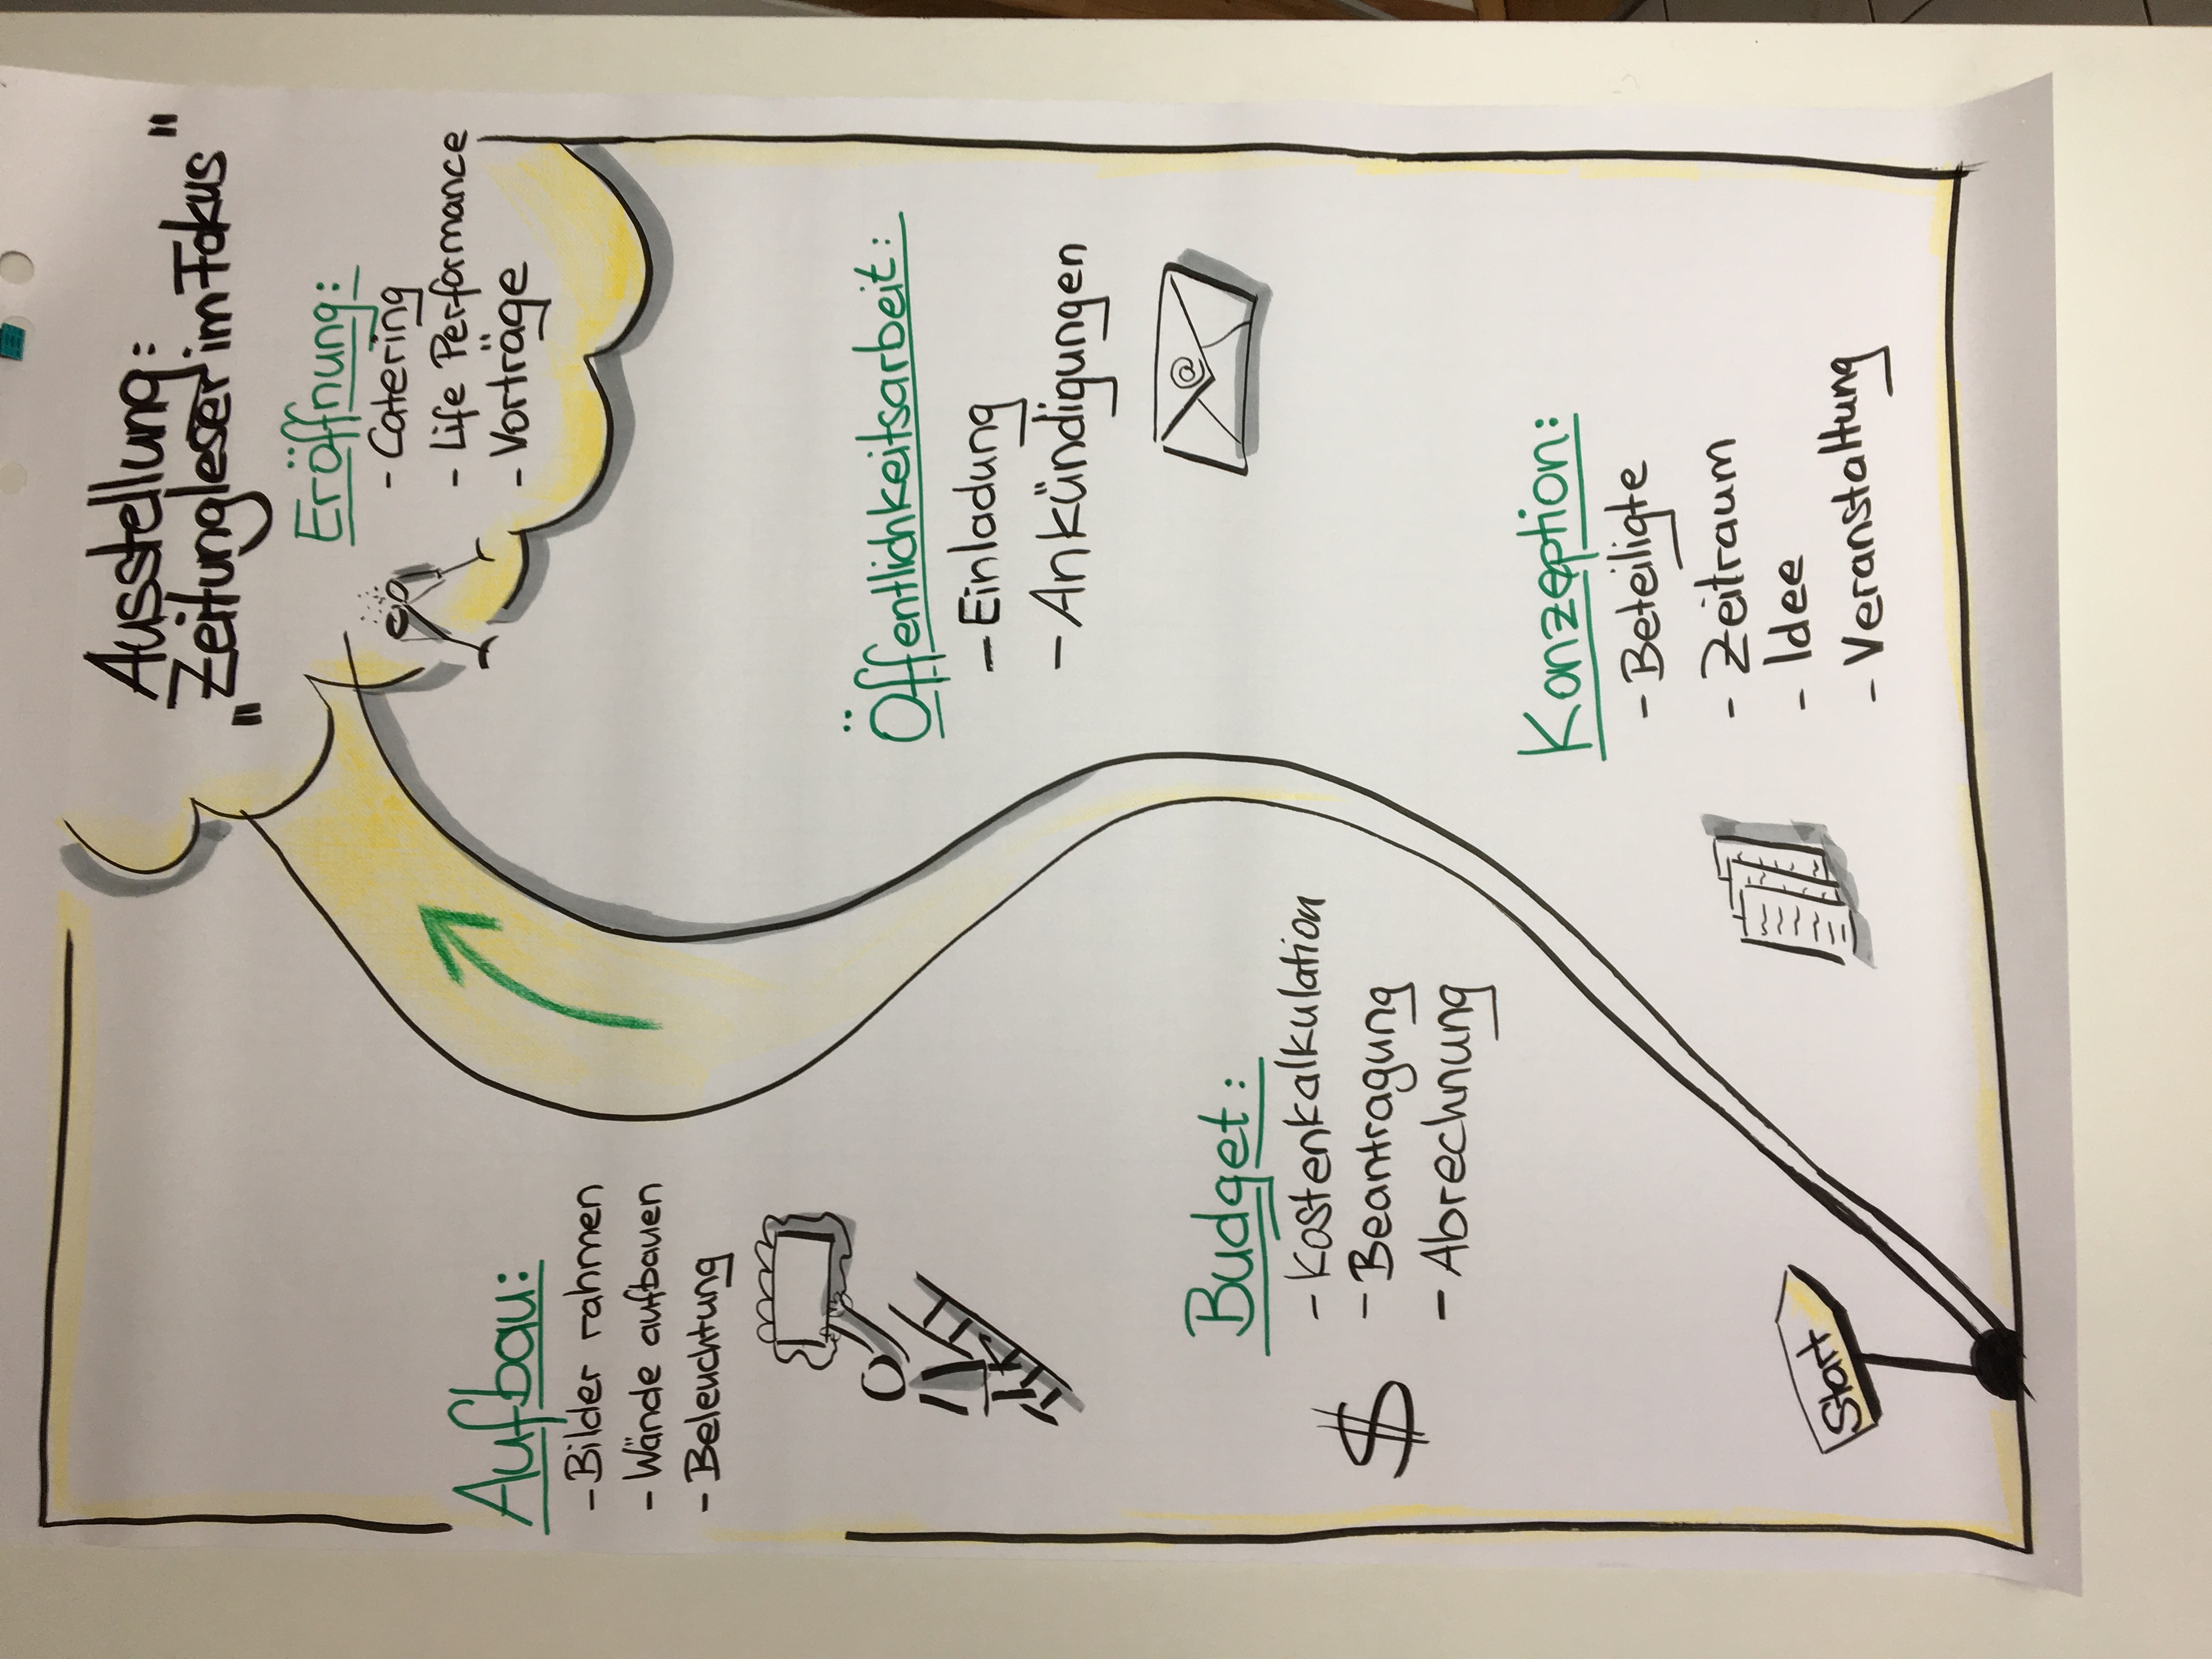 Ausstellung:
"Zeitungleser im Fokus"
Eröffnung:
- Catering
- Life Performance
- Vorträge
Aufbau:
- Bilder rahmen
- Wände aufbauen
- Beleuchtung
Öffentlichkeitsarbeit:
- Einladung
- Ankündigungen
@
Budget:
- Kostenkalkulation
- Beantragung
- Abrechnung
$
Konzeption:
- Beteiligte
- Zeitraum
- Idee
- Veranstaltung
Start